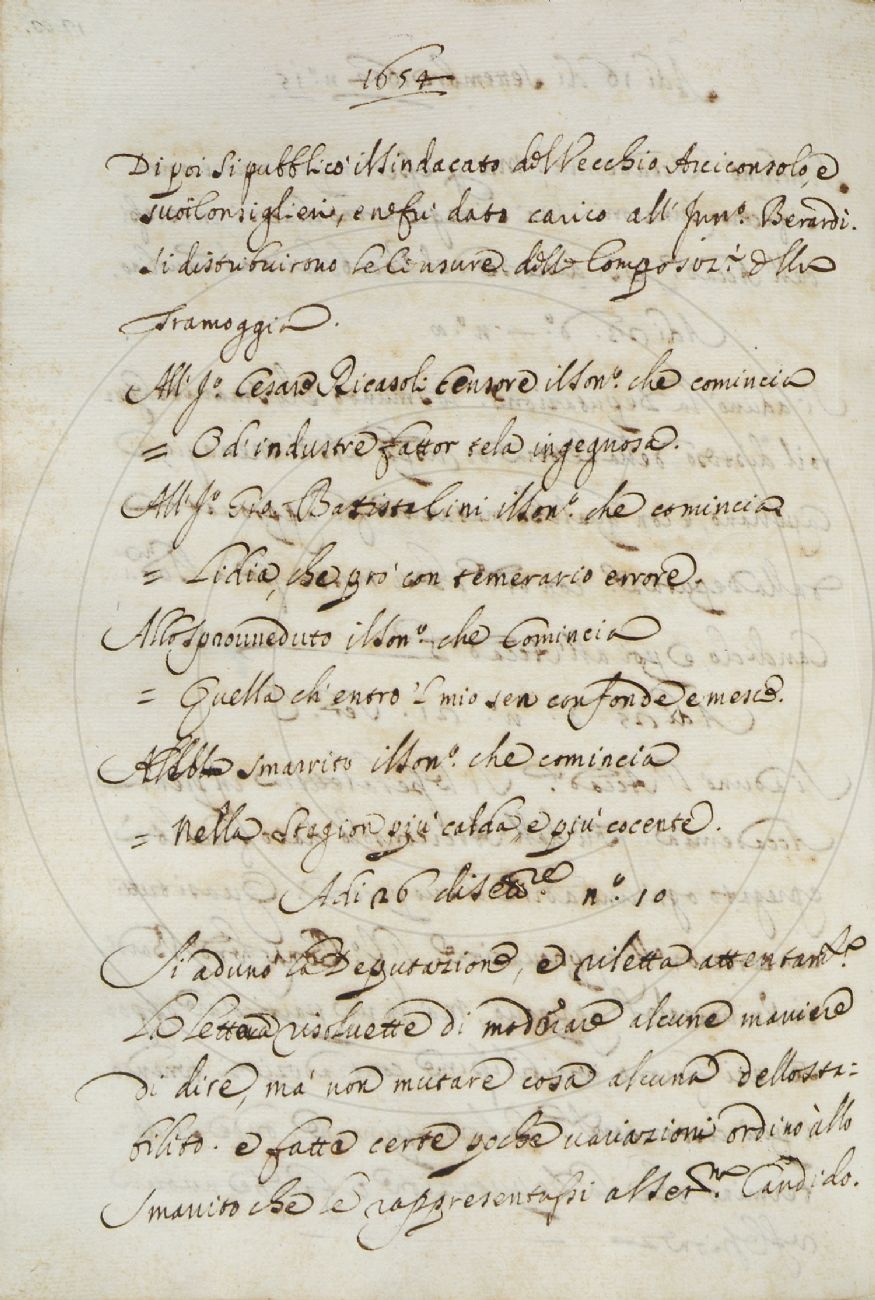 1654
Di poi si pubblicò il sindacato del Vecchio Arciconsolo, e
suoi Consiglieri, e ne fu dato carico all' Inn.º Berardi.
Si distribuirono le Censure delle Composiz.i della
Tramoggia.
All' J.º Cesare Ricasoli Censore il Son.º che comincia
= O d'industre fattor tela ingegnosa.
All' J.º Gio. Batista Cini il Son.º che comincia
= Lidia, che prò con temerario errore.
Allo Sprovveduto il Son.º che Comincia
= Quella ch'entro 'l mio sen confonde e mesce.
Allo Smarrito il Son.º che comincia
= Nella Stagion più calda, e più cocente.
Adi 26 di Set.re n.º 10
Si adunò la Deputazione, e riletta attentam.te
la lettera risolvette di moderare alcune maniere
di dire, ma non mutare cosa alcuna dello sta=
bilito. e fatte certe poche variazioni ordinò allo
Smarito che le rappresentassi al Ser.mo Candido.